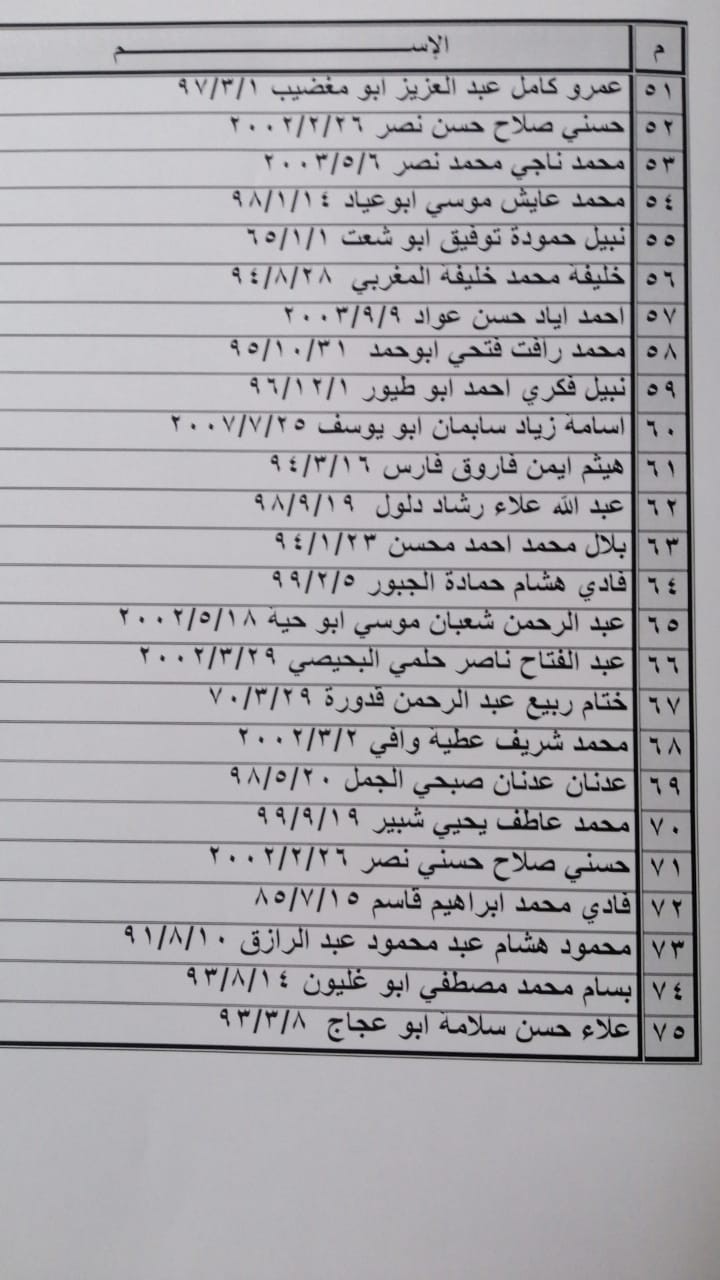 م الإســـــــــم
٥١ عمرو كامل عبد العزيز ابو مغضيب ٩٧/٣/١
٥٢ حسني صلاح حسن نصر ٢٠٠٢/٢/٢٦
٥٣ محمد ناجي محمد نصر ٢٠٠٣/٥/٦
٥٤ محمد عايش موسي ابوعياد ٩٨/١/١٤
٥٥ نبيل حمودة توفيق ابو شعت ٦٥/١/١
٥٦ خليفة محمد خليفة المغربي ٩٤/٨/٢٨
٥٧ احمد اياد حسن عواد ٢٠٠٣/٩/٩
٥٨ محمد رافت فتحي ابوحمد ٩٥/١٠/٣١
٥٩ نبيل فكري احمد ابو طيور ٩٦/١٢/١
٦٠ اسامة زياد سابمان ابو يوسف ٢٠٠٧/٧/٢٥
٦١ هيثم ايمن فاروق فارس ٩٤/٣/١٦
٦٢ عبد الله علاء رشاد دلول ٩٨/٩/١٩
٦٣ بلال محمد احمد محسن ٩٤/١/٢٣
٦٤ فادي هشام حمادة الجبور ٩٩/٢/٥
٦٥ عبد الرحمن شعبان موسي ابو حية ٢٠٠٢/٥/١٨
٦٦ عبد الفتاح ناصر حلمي البحيصي ٢٠٠٢/٣/٢٩
٦٧ ختام ربيع عبد الرحمن قدورة ٧٠/٣/٢٩
٦٨ محمد شريف عطية وافي ٢٠٠٢/٣/٢
٦٩ عدنان عدنان صبحي الجمل ٩٨/٥/٢٠
٧٠ محمد عاطف يحيي شبير ٩٩/٩/١٩
٧١ حسني صلاح حسني نصر ٢٠٠٢/٢/٢٦
٧٢ فادي محمد ابراهيم قاسم ٨٥/٧/١٥
٧٣ محمود هشام عبد محمود عبد الرازق ٩١/٨/١٠
٧٤ بسام محمد مصطفي ابو غليون ٩٣/٨/١٤
٧٥ علاء حسن سلامة ابو عجاج ٩٣/٣/٨